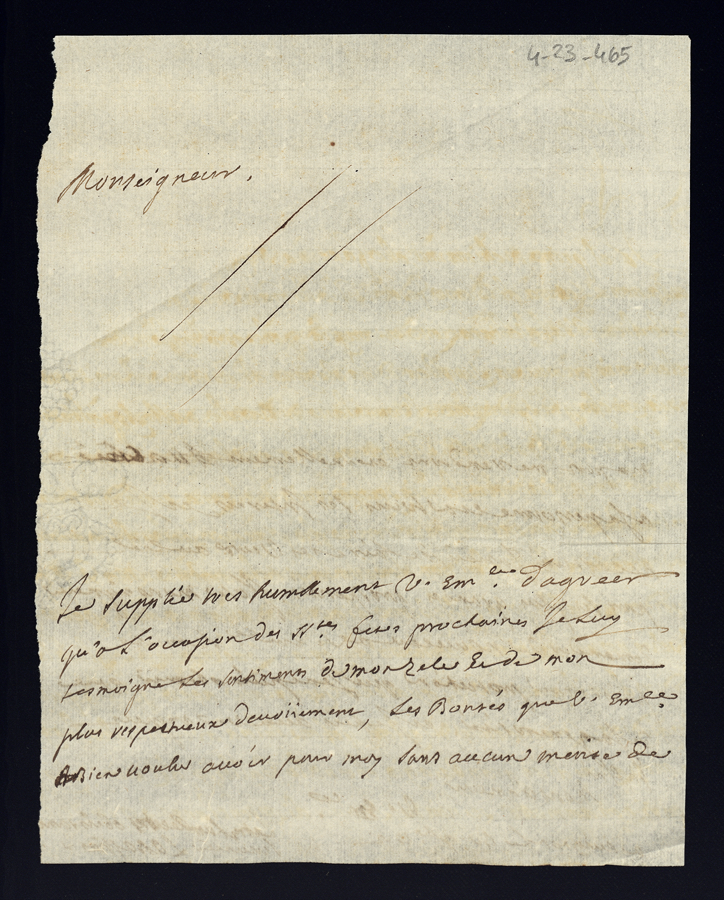 4-23-465
Monseigneur,
Je supplie tres humblement V. Em.ce d'agreer
qu'a L'occasion des S.tes fetes prochaines Je Luy
tesmoigne Les sentiments de mon Zele Et de mon
plus respectueux devoüement, Les Bontés que V. Em.ce
a Bien voulu avoir pour moy sans aucun merite de